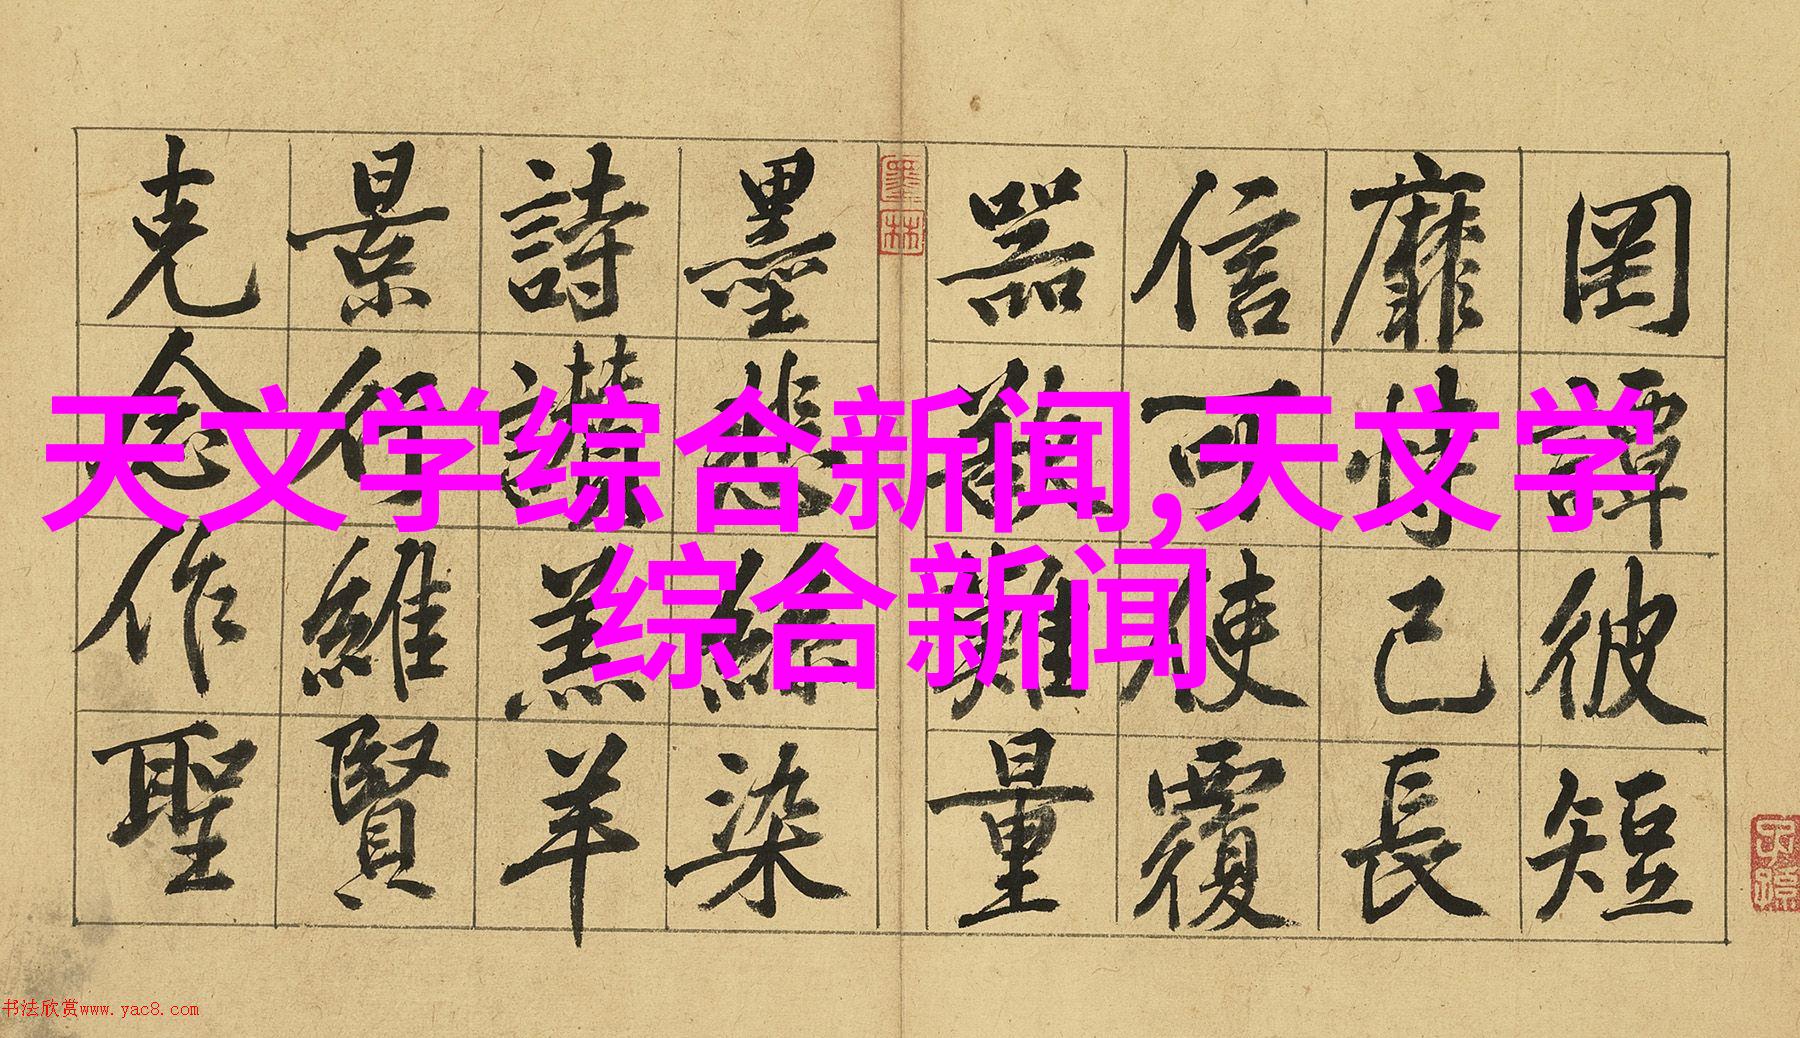 天文学综合新闻,天文学
综合新闻
罔譚彼短
靡恃己長
信可使覆
器難量
墨悲絲染
詩讚羔羊
景行維賢
克念作聖
墨林
书法欣赏www.yac8.com